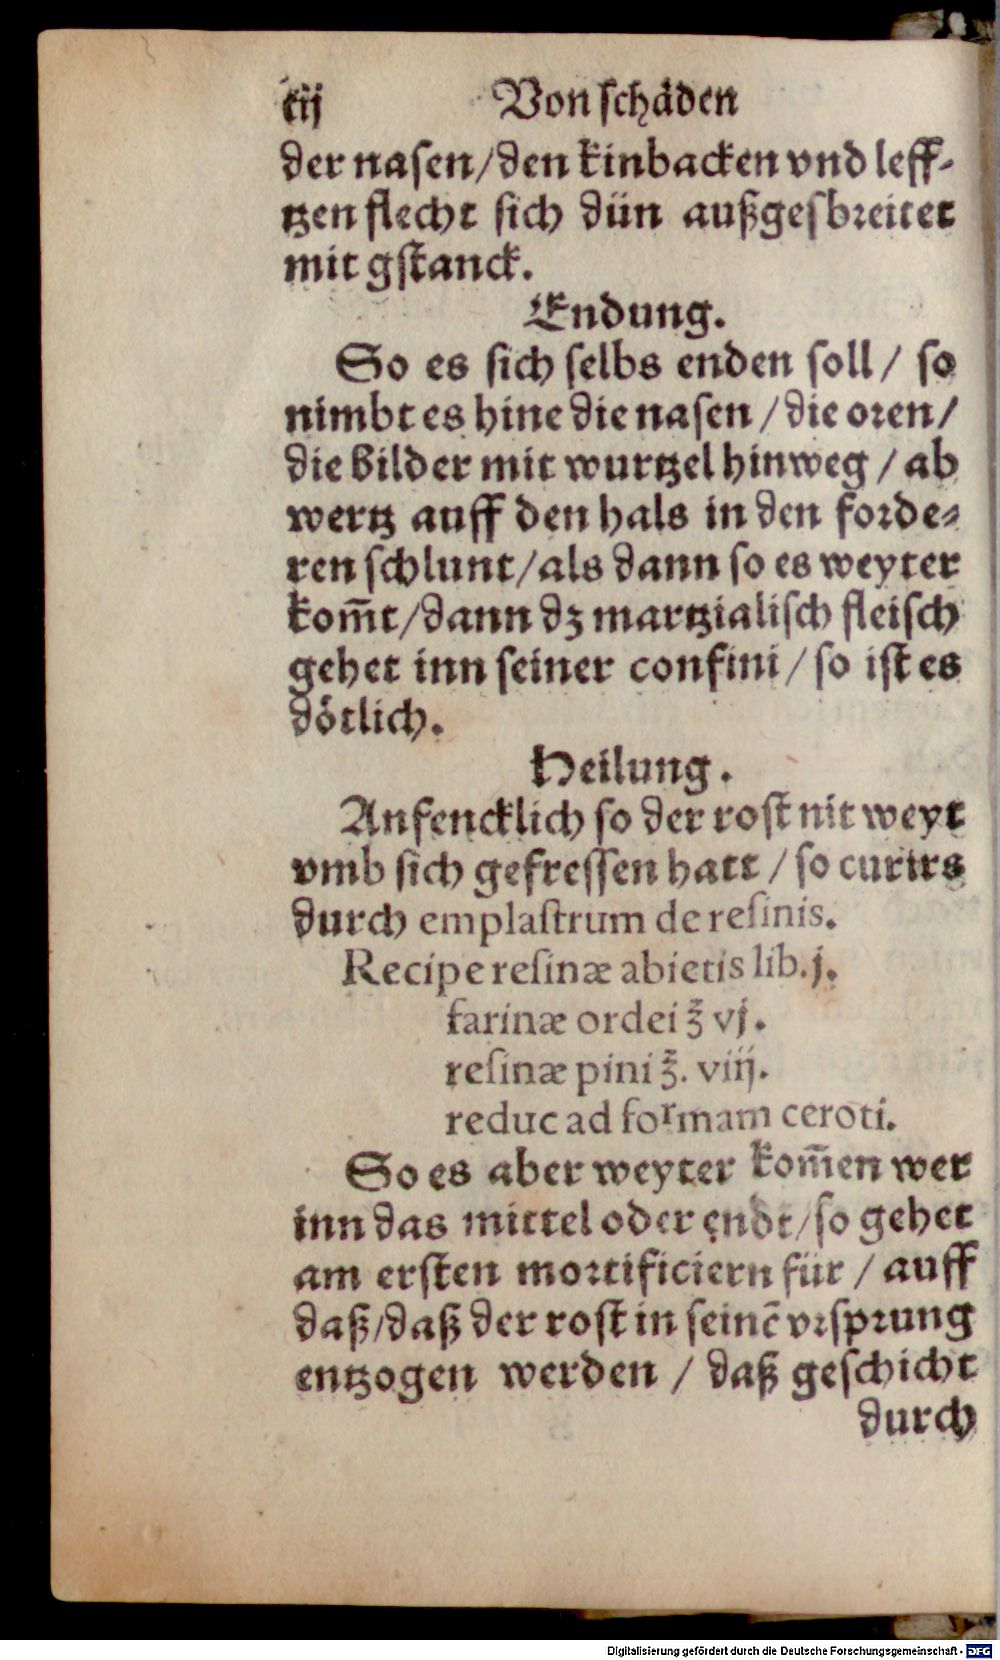 cij Von schäden
der nasen/den kinbacken vnd leff-
tzen flecht sich dün außgesbreitet
mit gstanck.
Endung.
So es sich selbs enden soll/ so
nimbt es hine die nasen /die oren/
die bilder mit wurtzel hinweg / ab
wertz auff den hals in den forde-
ren schlunt/als dann so es weyter
kom̄t/dann dz martzialisch fleisch
gehet inn seiner confini/ so ist es
dötlich.
Heilung.
Anfencklich so der rost nit weyt
vmb sich gefressen hatt / so curirs
durch emplastrum de resinis.
Recipe resinæ abietis lib. j.
farinæ ordei ℥ vj.
resinæ pini ℥. viij.
reduc ad formam ceroti.
So es aber weyter kom̄en wer
inn das mittel oder endt/so gehet
am ersten mortificiern für / auff
daß/daß der rost in seinē vrsprung
entzogen werden / daß geschicht
durch
Digitalisierung gefördert durch die Deutsche Forschungsgemeinschaft - DFG